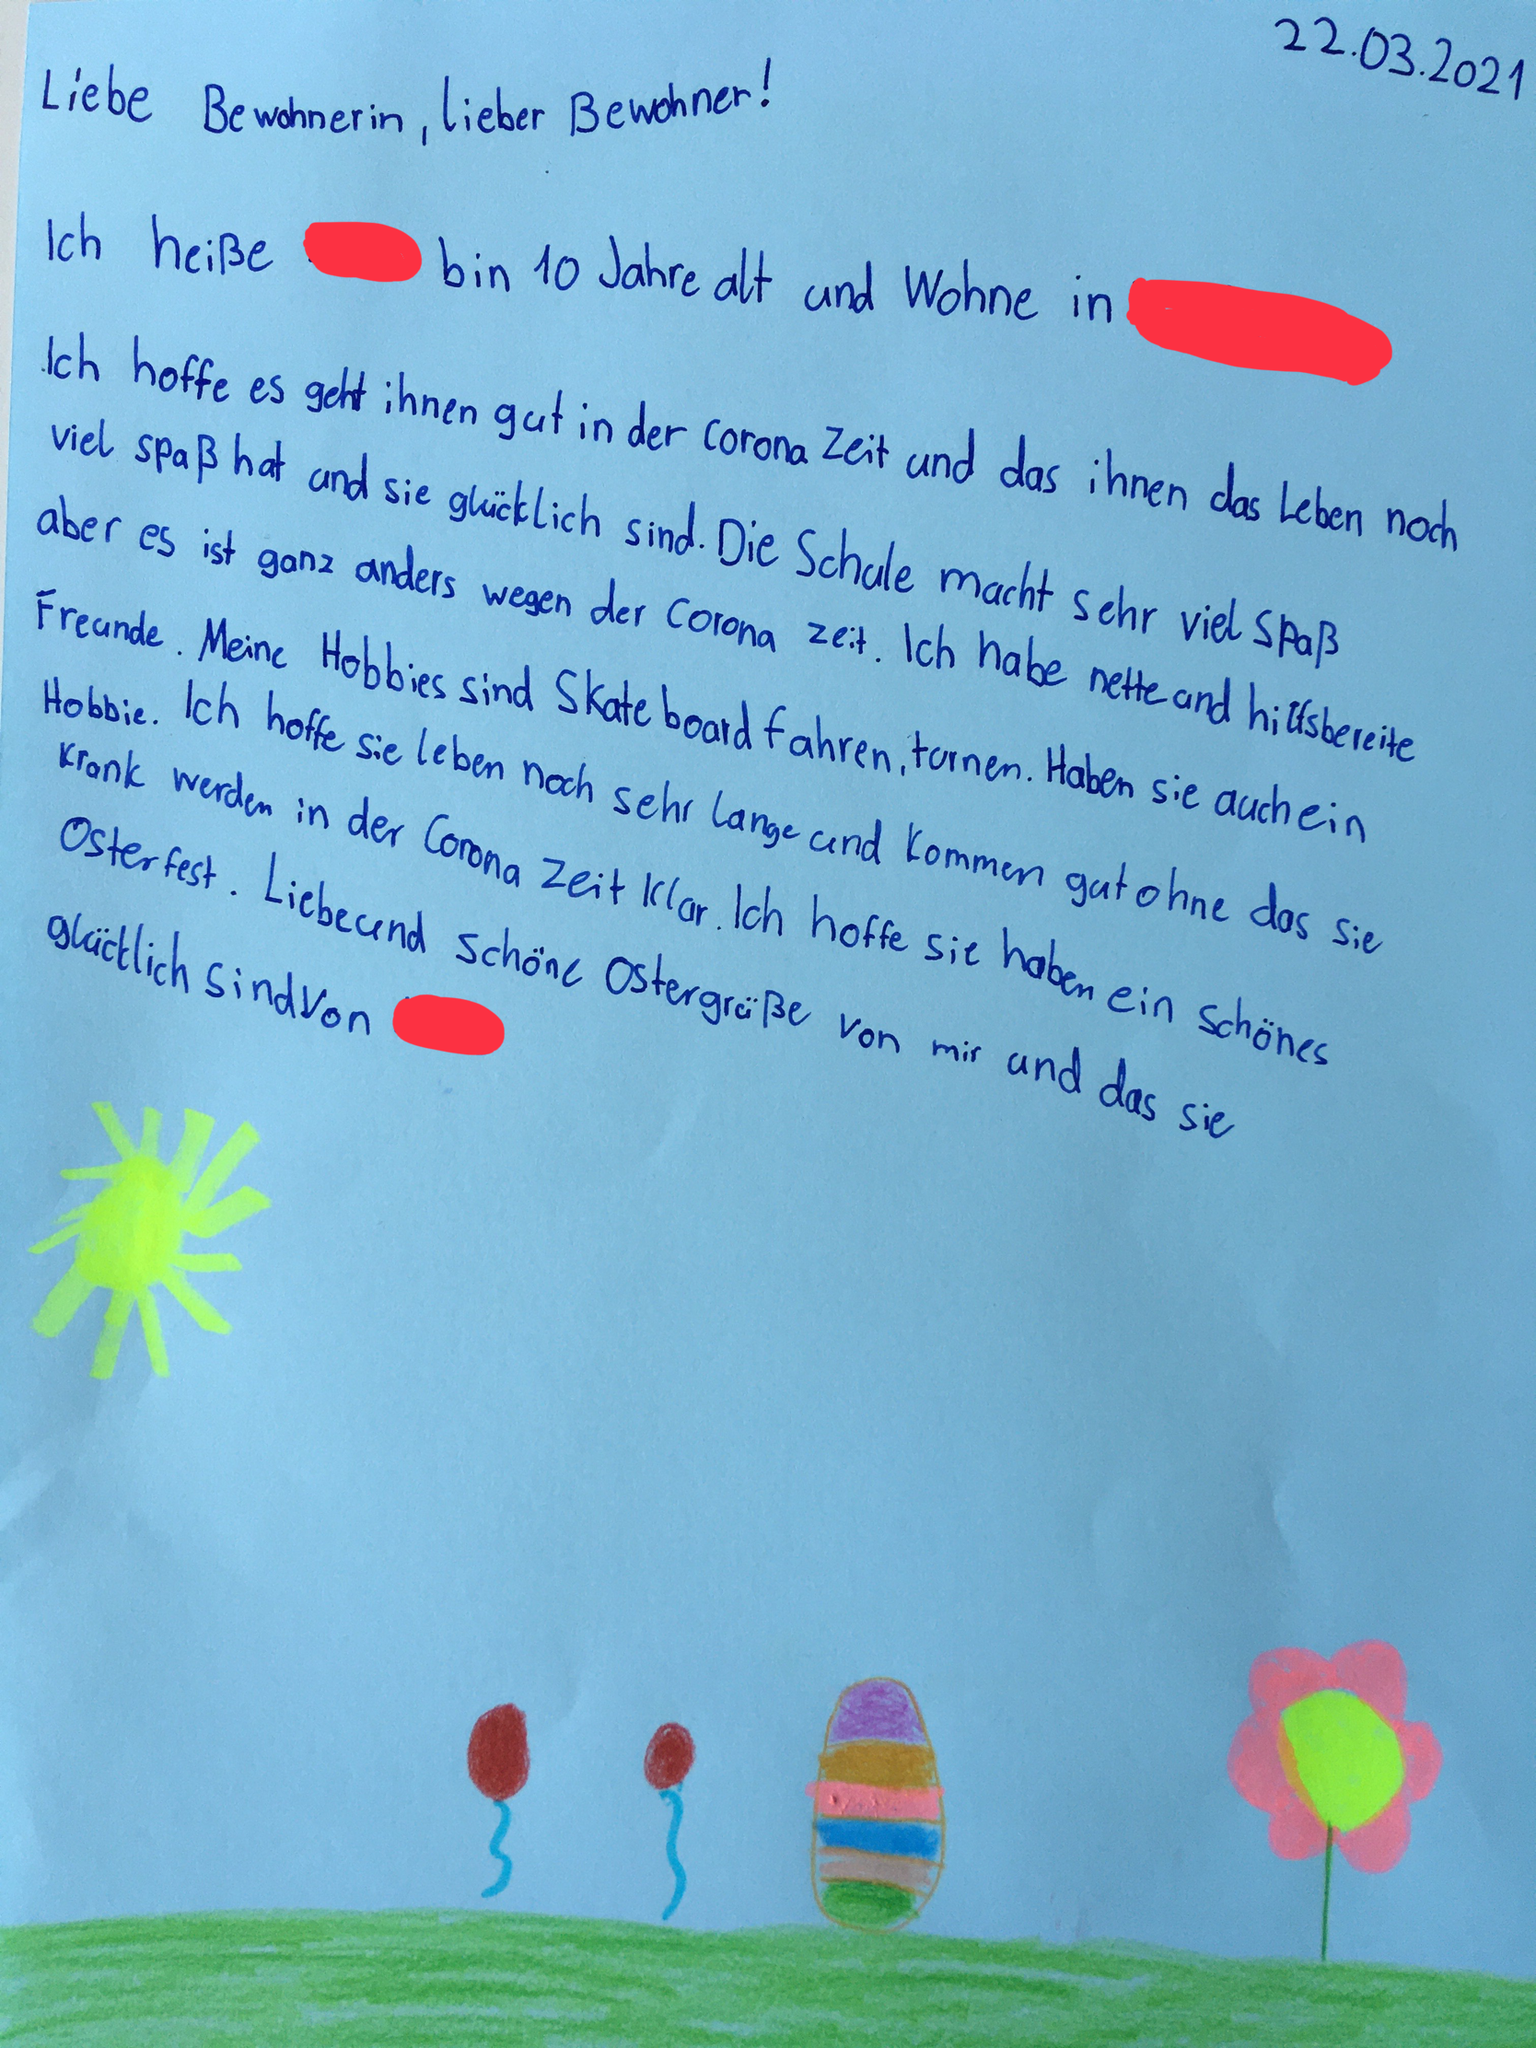 22.03.2021
Liebe Bewohnerin, lieber Bewohner!
Ich heiße bin 10 Jahre alt und Wohne in
Ich hoffe es geht ihnen gut in der Corona Zeit und das ihnen das Leben noch
viel spaß hat und sie glücklich sind. Die Schule macht sehr viel Spaß
aber es ist ganz anders wegen der Corona zeit. Ich habe nette und hilfsbereite
Freunde. Meine Hobbies sind Skateboard fahren, turnen. Haben sie auch ein
Hobbie. Ich hoffe sie leben noch sehr lange und kommen gut ohne das sie
Krank werden in der Corona Zeit klar. Ich hoffe sie haben ein schönes
Osterfest. Liebe und schöne Ostergrüße von mir und das sie
glücklich sind von